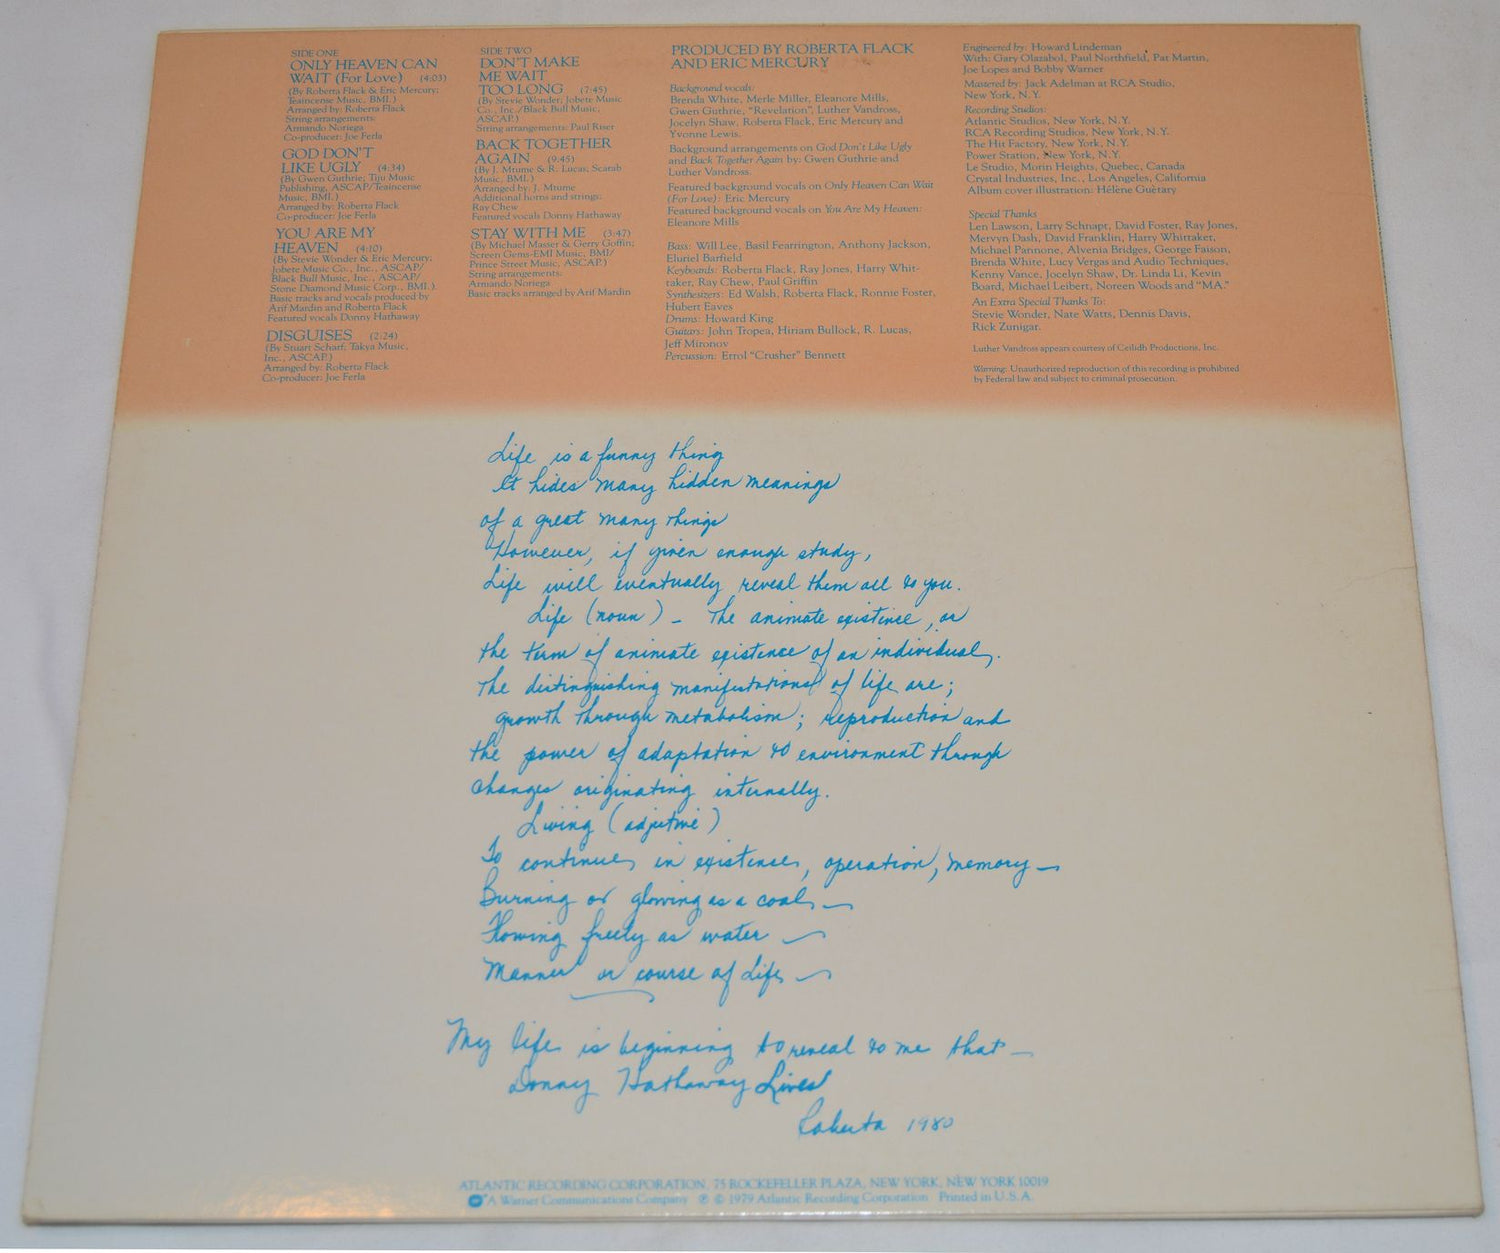 SIDE ONE
ONLY HEAVEN CAN
WAIT (For Love) (4:03)
(By Roberta Flack & Eric Mercury;
Teaincense Music, BMI.)
Arranged by: Roberta Flack
String arrangements:
Armando Noriega
Co-producer: Joe Ferla
GOD DON'T
LIKE UGLY (4:34)
(By Gwen Guthrie; Tiju Music
Publishing, ASCAP/Teaincense
Music, BMI.)
Arranged by: Roberta Flack
Co-producer: Joe Ferla
YOU ARE MY
HEAVEN (4:10)
(By Stevie Wonder & Eric Mercury;
Jobete Music Co., Inc., ASCAP/
Black Bull Music, Inc., ASCAP/
Stone Diamond Music Corp., BMI.)
Basic tracks and vocals produced by
Arif Mardin and Roberta Flack
Featured vocals Donny Hathaway
DISGUISES (2:24)
(By Stuart Scharf; Takya Music,
Inc., ASCAP.)
Arranged by: Roberta Flack
Co-producer: Joe Ferla
SIDE TWO
DON'T MAKE
ME WAIT
TOO LONG (7:45)
(By Stevie Wonder; Jobete Music
Co., Inc./Black Bull Music,
ASCAP.)
String arrangements: Paul Riser
BACK TOGETHER
AGAIN (9:45)
(By J. Mtume & R. Lucas; Scarab
Music, BMI.)
Arranged by: J. Mtume
Additional horns and strings:
Ray Chew
Featured vocals Donny Hathaway
STAY WITH ME (3:47)
(By Michael Masser & Gerry Goffin;
Screen Gems-EMI Music, BMI/
Prince Street Music, ASCAP.)
String arrangements:
Armando Noriega
Basic tracks arranged by Arif Mardin
PRODUCED BY ROBERTA FLACK
AND ERIC MERCURY
Background vocals:
Brenda White, Merle Miller, Eleanore Mills,
Gwen Guthrie, "Revelation", Luther Vandross,
Jocelyn Shaw, Roberta Flack, Eric Mercury and
Yvonne Lewis.
Background arrangements on God Don't Like Ugly
and Back Together Again by: Gwen Guthrie and
Luther Vandross.
Featured background vocals on Only Heaven Can Wait
(For Love): Eric Mercury
Featured background vocals on You Are My Heaven:
Eleanore Mills
Bass: Will Lee, Basil Fearrington, Anthony Jackson,
Eluriel Barfield
Keyboards: Roberta Flack, Ray Jones, Harry Whit-
taker, Ray Chew, Paul Griffin
Synthesizers: Ed Walsh, Roberta Flack, Ronnie Foster,
Hubert Eaves
Drums: Howard King
Guitars: John Tropea, Hiriam Bullock, R. Lucas,
Jeff Mironov
Percussion: Errol "Crusher" Bennett
Engineered by: Howard Lindeman
With: Gary Olazabol, Paul Northfield, Pat Martin,
Joe Lopes and Bobby Warner
Mastered by: Jack Adelman at RCA Studio,
New York, N.Y.
Recording Studios:
Atlantic Studios, New York, N.Y.
RCA Recording Studios, New York, N.Y.
The Hit Factory, New York, N.Y.
Power Station, New York, N.Y.
Le Studio, Morin Heights, Quebec, Canada
Crystal Industries, Inc., Los Angeles, California
Album cover illustration: Hélène Guétary
Special Thanks
Len Lawson, Larry Schnapt, David Foster, Ray Jones,
Mervyn Dash, David Franklin, Harry Whittaker,
Michael Pannone, Alvenia Bridges, George Faison,
Brenda White, Lucy Vergas and Audio Techniques,
Kenny Vance, Jocelyn Shaw, Dr. Linda Li, Kevin
Board, Michael Leibert, Noreen Woods and "MA."
An Extra Special Thanks To:
Stevie Wonder, Nate Watts, Dennis Davis,
Rick Zunigar.
Luther Vandross appears courtesy of Ceilidh Productions, Inc.
Warning: Unauthorized reproduction of this recording is prohibited
by Federal law and subject to criminal prosecution.
Life is a funny thing
It hides many hidden meanings
of a great many things
However, if given enough study,
Life will eventually reveal them all to you.
Life (noun) - The animate existence, or
the term of animate existence of an individual.
The distinguishing manifestations of life are;
growth through metabolism; reproduction and
the power of adaptation to environment through
changes originating internally.
Living (adjective)
To continue in existence, operation, memory —
Burning or glowing as a coal —
Flowing freely as water —
Manner or course of Life —
My life is beginning to reveal to me that —
Donny Hathaway Lives
Roberta 1980
ATLANTIC RECORDING CORPORATION, 75 ROCKEFELLER PLAZA, NEW YORK, NEW YORK 10019
A Warner Communications Company ℗ © 1979 Atlantic Recording Corporation Printed in U.S.A.